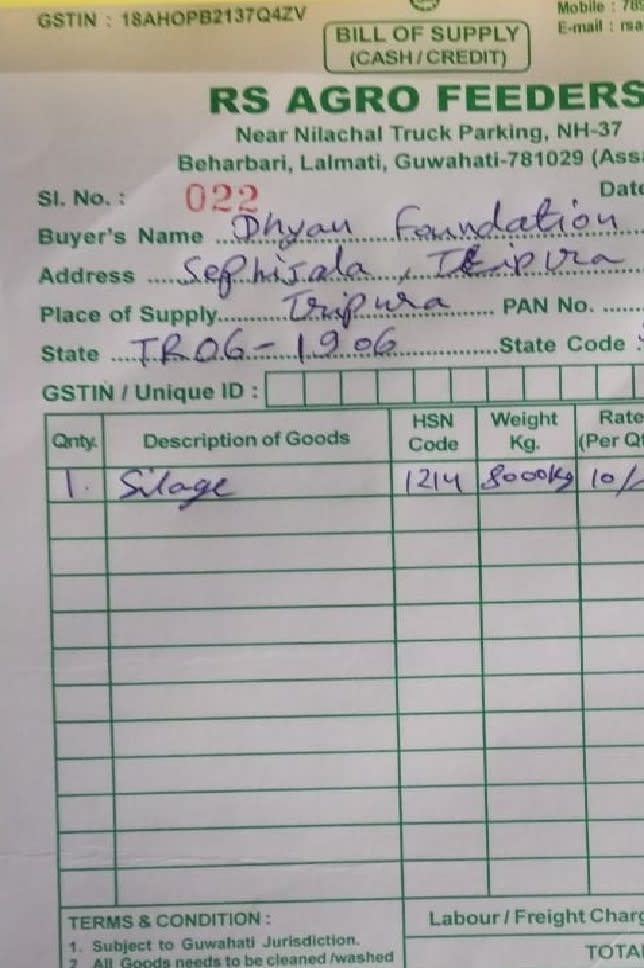 GSTIN : 18AHOPB2137Q4ZV
Mobile : 789
BILL OF SUPPLY
E-mail : rsa
(CASH / CREDIT)
RS AGRO FEEDERS
Near Nilachal Truck Parking, NH-37
Beharbari, Lalmati, Guwahati-781029 (Assa
Sl. No. : 022 Date
Buyer's Name Dhyan Foundation
Address Sephijala, Tripura
Place of Supply Tripura PAN No.
State TR06-1906 State Code :
GSTIN / Unique ID :
Qnty. Description of Goods HSN Code Weight Kg. Rate (Per Qt
1. Silage 1214 8000kg 10/-
TERMS & CONDITION : Labour / Freight Charg
1. Subject to Guwahati Jurisdiction.
2. All Goods needs to be cleaned /washed TOTA